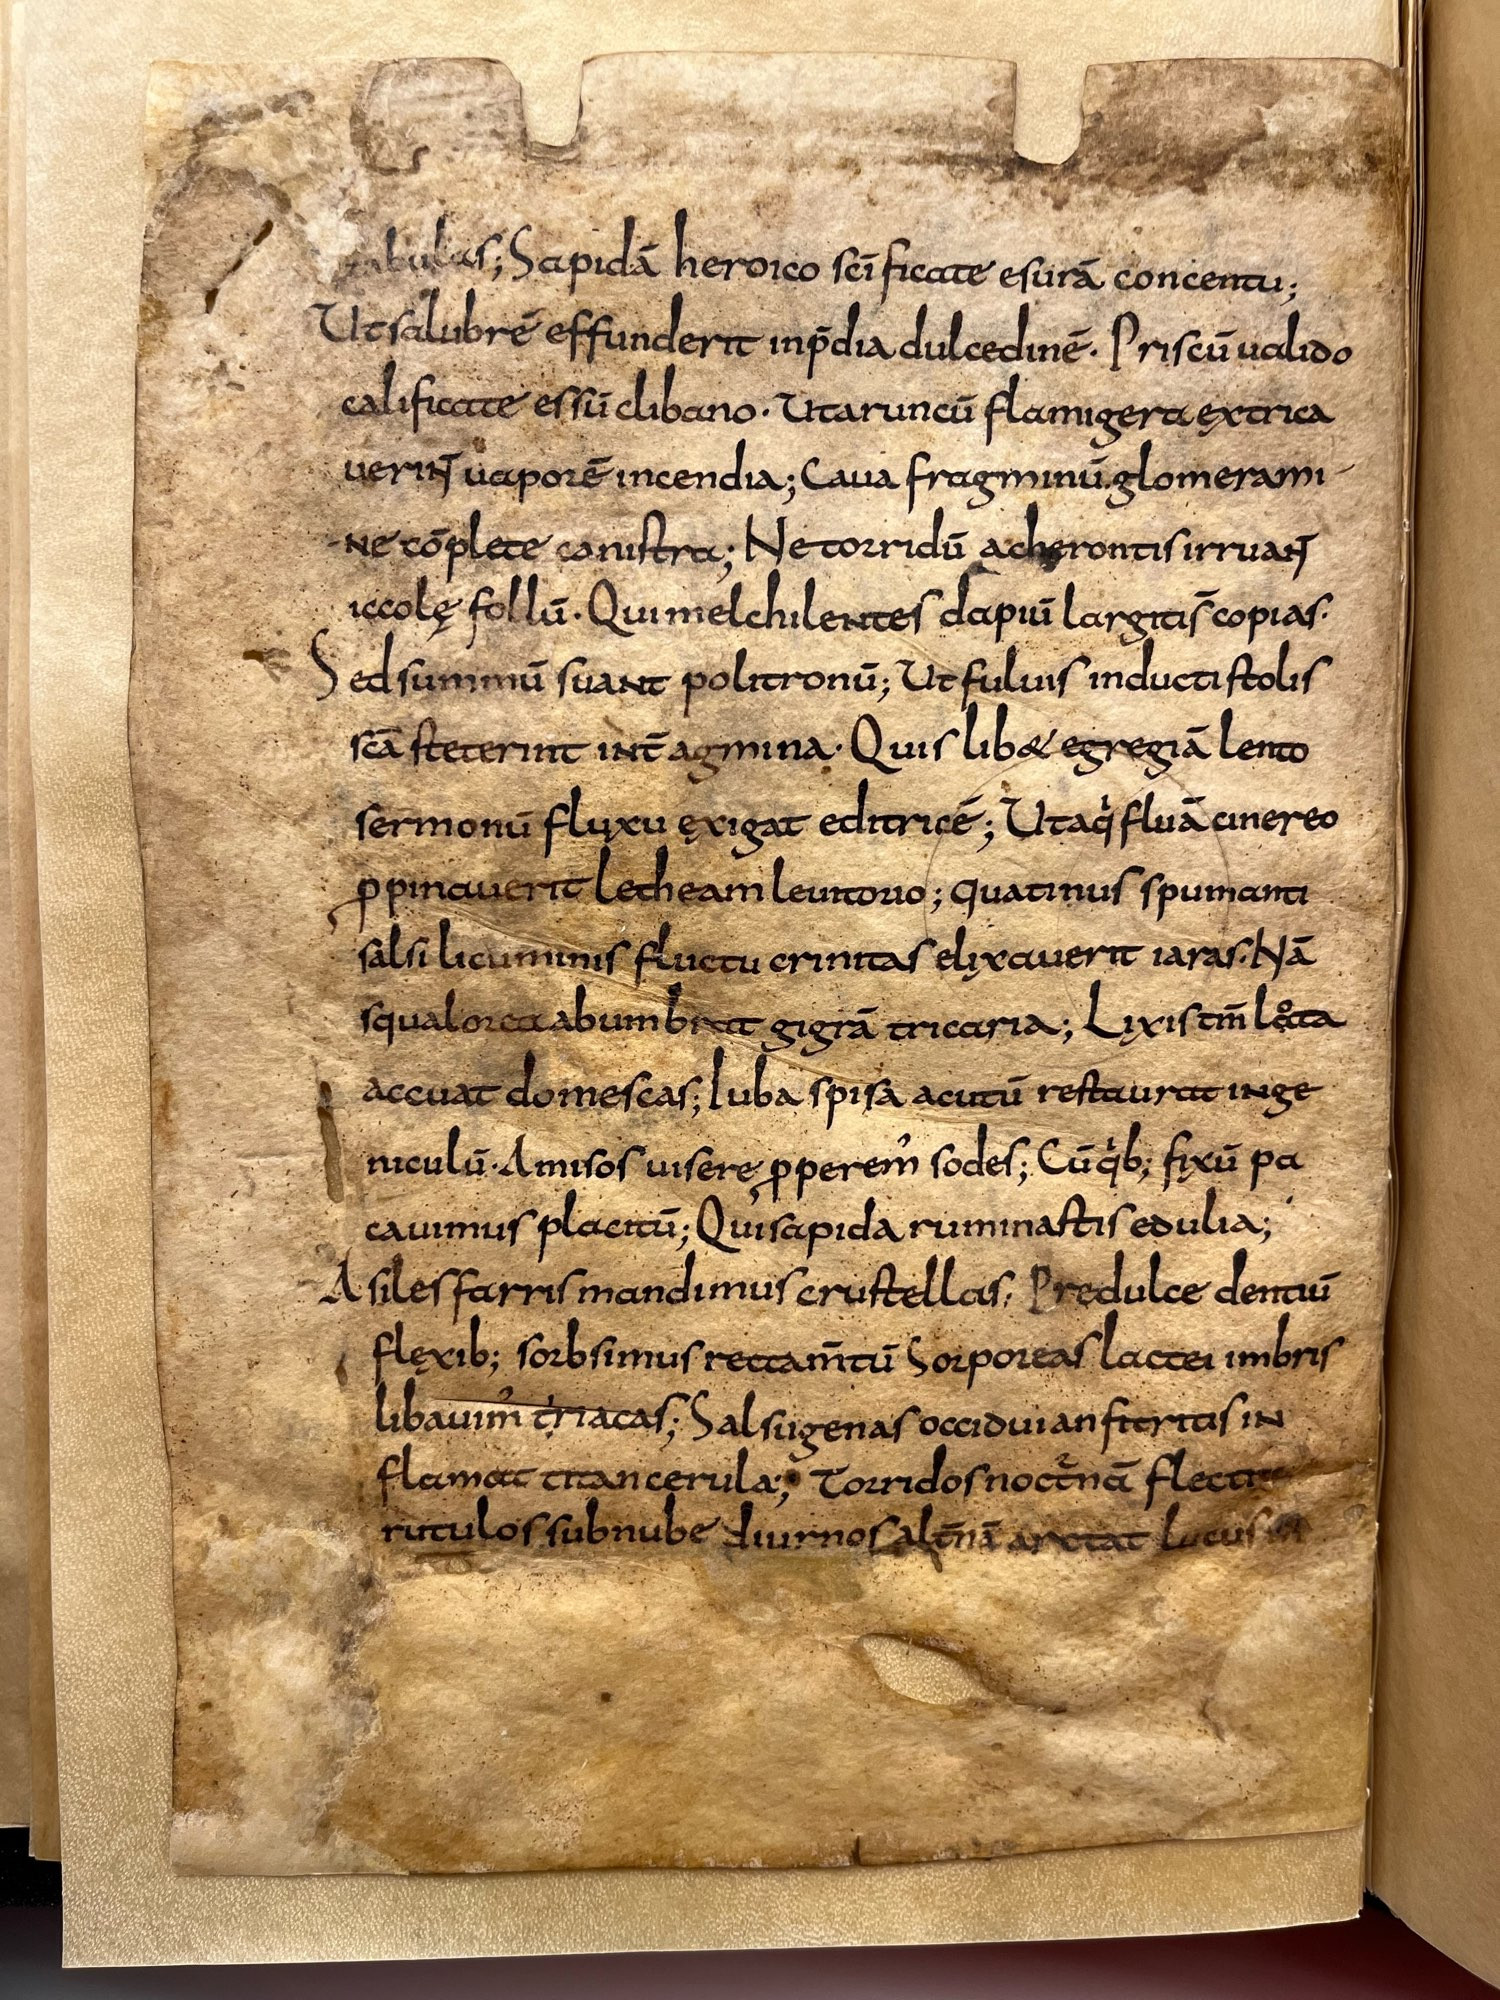 tabulas; Sapidā heroico scīficate esurā concentu;
Ut salubrē effunderit inp̄dia dulcedinē. Priscū ualido
calificate essū clibano. Utaruncū flamigera extrica
uerint̄ uaporē incendia; Caua fragminū glomerami
ne cōplete canistra; Ne torridū acherontis irruant̄
iccolę follū. Qui melchilentes dapiū largitis̄ copias.
Sed summū suant politronū; Ut fuluis inducti stolis
scā steterint int̄ agmina. Quis lib& egregiā lento
sermonū fluxu exigat editricē; Ut aq̇ fluā cinereo
ꝓpinauerit lecheam leuitorio; quatinus spumanti
salsi licuminis fluctu crinitas elixauerit iaras. Nā
squalorea abumbrat gigrā tricaria; Lixis tm̄ locata
accuat domescas; luba spisa acutū restaurat inge
niculū. Amisos uisere ꝓperem᾽ sodes; Cūq̇b; fixū pa
cauimus placitū; Qui sapida ruminastis edulia;
Asiles farris mandimus crustellas. Predulce dentiū
flexib; sorbsimus reccam̄tū Sorporeas lactei imbris
libauim᾽ triacas; Salsugenas occidui anfitritis in
flamat titan cerula; Torridos noct̄nā flectit
rutulos subnube diurnos alt̄nā arctat lucus